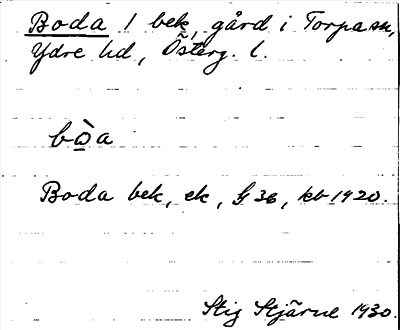 Boda 1 bek, gård i Torpa sn,
Ydre hd, Österg. l.
bò᷂a
Boda bek, ek, G 36, kb 1920.
Stig Stjärne 1930.